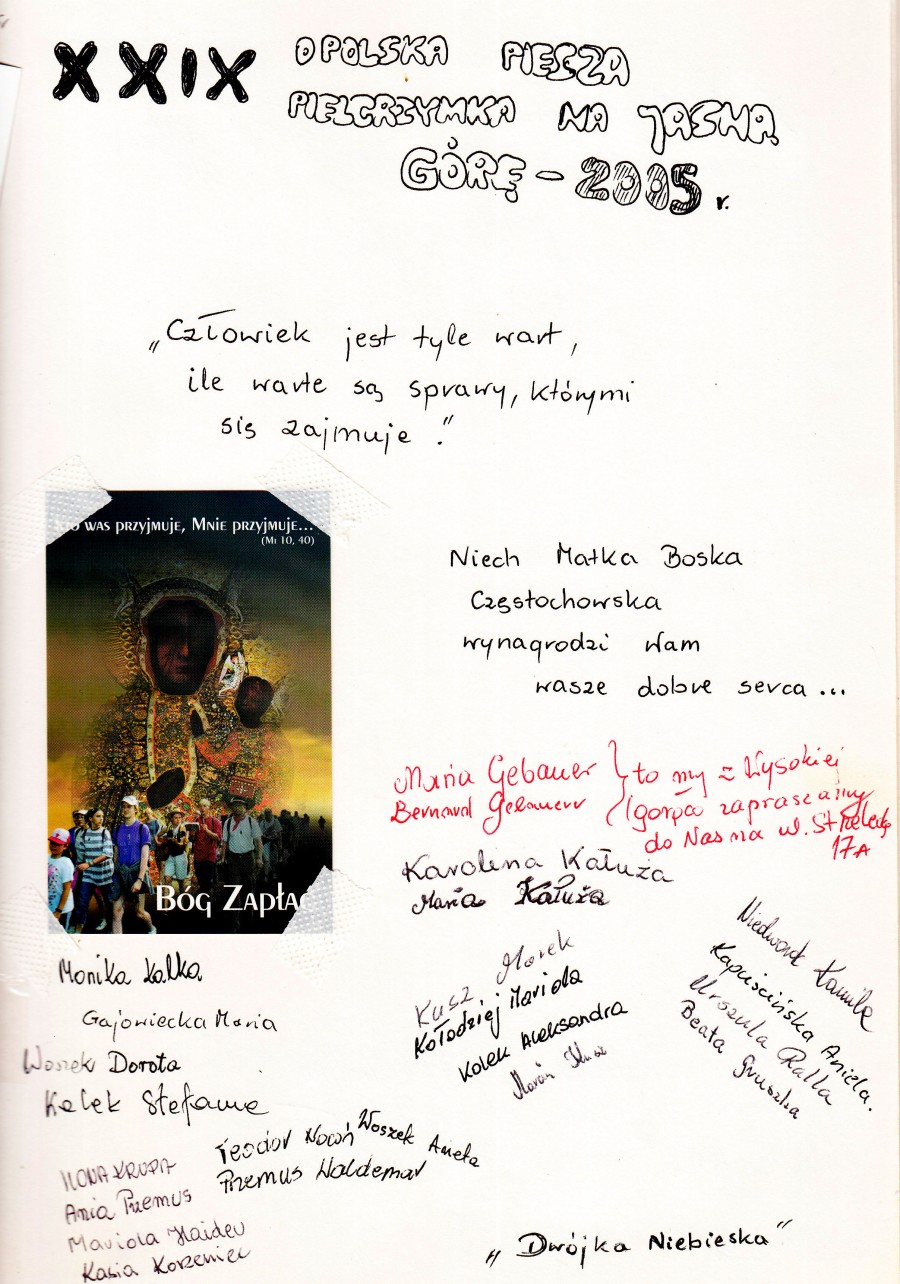 XXIX OPOLSKA PIESZA
PIELGRZYMKA NA JASNĄ
GÓRĘ – 2005 r.
„Człowiek jest tyle wart,
ile warte są sprawy, którymi
się zajmuje."
WAS PRZYJMUJE, MNIE PRZYJMUJE...
(MT 10, 40)
BÓG ZAPŁAĆ
Niech Matka Boska
Częstochowska
wynagrodzi Wam
wasze dobre serca...
Maria Gebauer } to my z Wysokiej
Bernard Gebauer (gorąco zapraszamy
do Nas na ul. Strzelecką
17A
Karolina Kałuża
Maria Kałuża
Monika Kalka
Gajowiecka Maria
Woszek Dorota
Kalek Stefania
Kusz Marek
Kołodziej Mariola
Kolek Aleksandra
Kusz
Kamila
Kapuścińska Aniela.
Urszula Ralla
Beata Gruszka
Teodor Nowń
Woszek Aneta
Przemus Waldemar
ILONA KRUPA
Ania Przemus
Mariola Haider
Kasia Korzeniec
„Dwójka Niebieska"